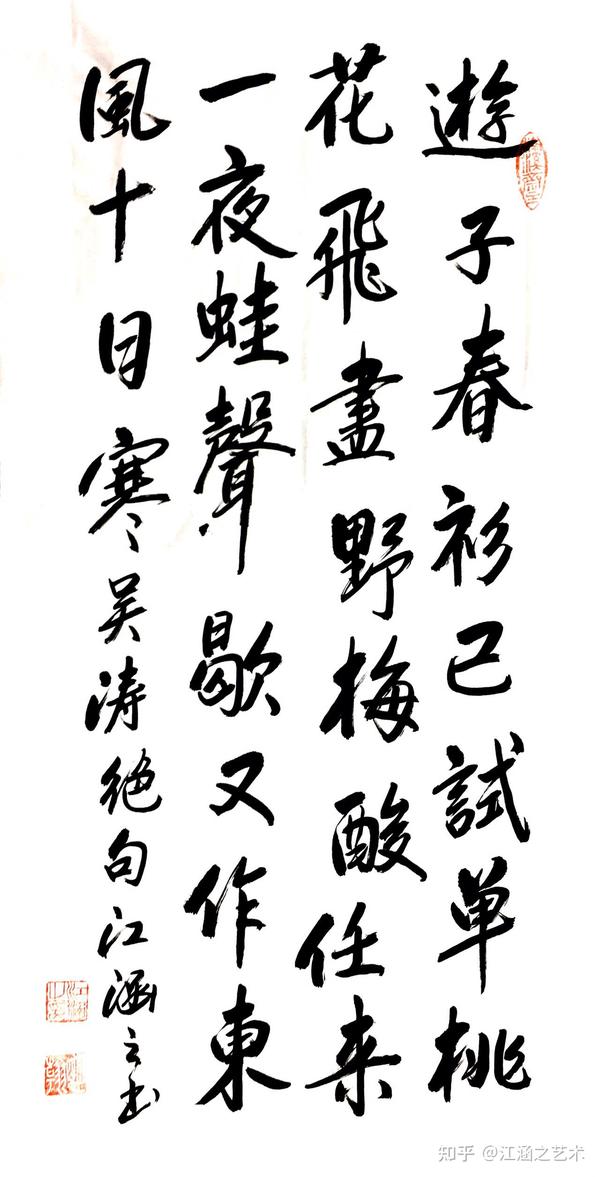 遊子春衫已試单桃
花飛盡野梅酸任来
一夜蛙聲歇又作東
風十日寒吴涛绝句江涵之书
知乎 @江涵之艺术